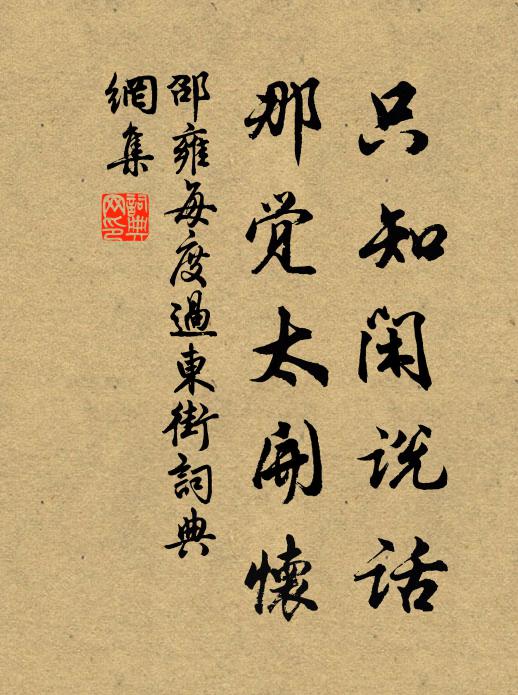 只知闲说话
那觉太開懷
邵雍每度過東街詞典
網集
詞典網印